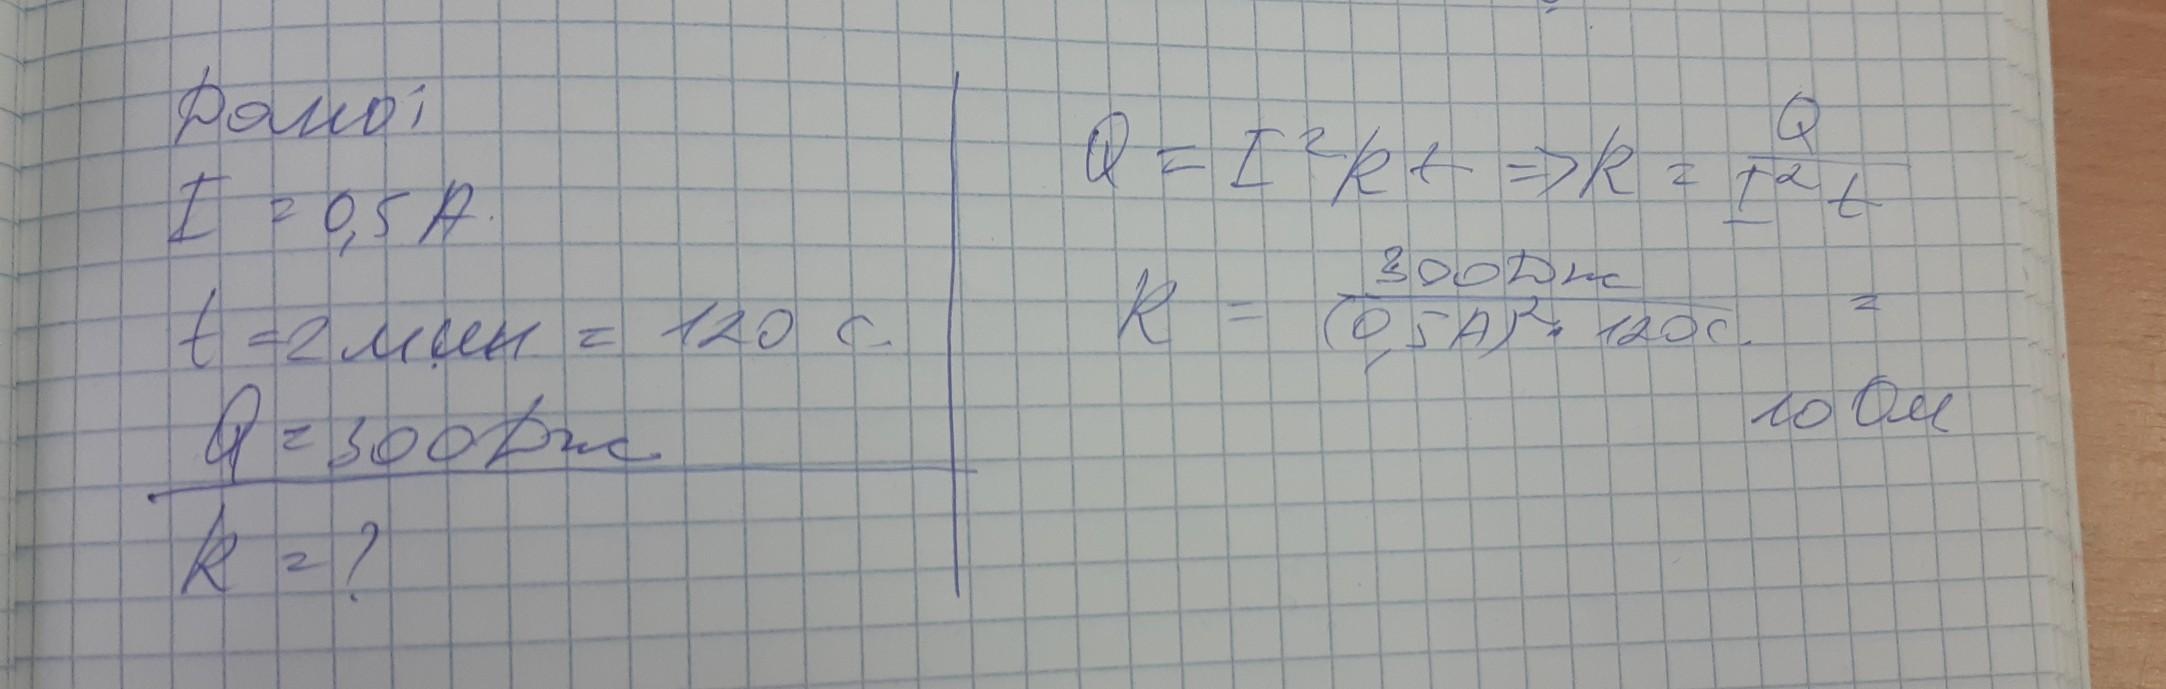 Дано:
I = 0,5 А.
t = 2 мин = 120 с.
Q = 300 Дж
R = ?
Q = I²Rt => R = Q / I²t
R = 300 Дж / (0,5 А)² · 120 с. =
10 Ом